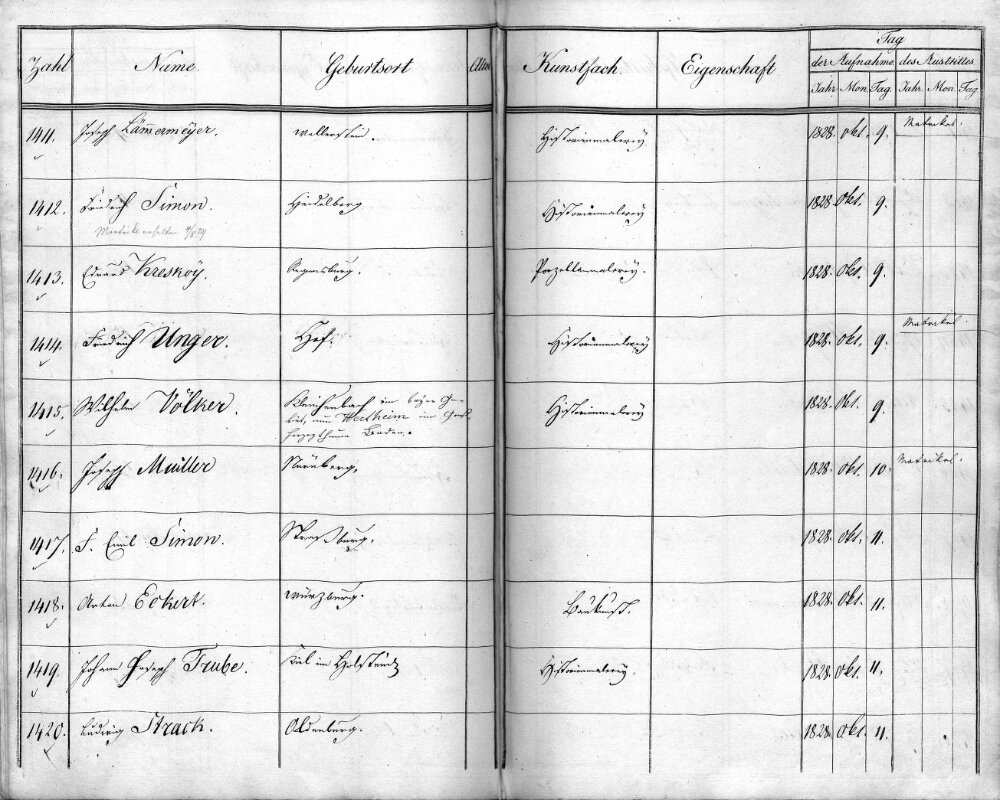 Zahl Name. Geburtsort Alter Kunstfach Eigenschaft Tag
der Aufnahme des Austrittes
Jahr. Mon. Tag. Jahr. Mon. Tag
1411. Joseph Lämmermeÿer. Wallerstein. Historienmalereÿ 1828. Okt. 9. Matrikel.
1412. Friedrich Simon. Heidelberg Historienmalereÿ 1828. Okt. 9.
Matrikel erhalten
1413. Eduard Kreskoÿ. Regensburg. Porzellanmalereÿ. 1828. Okt. 9.
1414. Friedrich Unger. Hof. Historienmalereÿ 1828. Okt. 9. Matrikel.
1415. Wilhelm Völker. im
Wertheim im Groß- Historienmalereÿ 1828. Okt. 9.
herzogthum Baden.
1416. Joseph Müller Nürnberg. 1828. Okt. 10. Matrikel.
1417. F. Emil Simon. Straßburg. 1828. Okt. 11.
1418. Anton Eckert. Würzburg. Baukunst. 1828. Okt. 11.
1419. Johann Joseph Trube. Kiel im Holstein Historienmalereÿ. 1828. Okt. 11.
1420. Ludwig Strack. Oldenburg. 1828. Okt. 11.